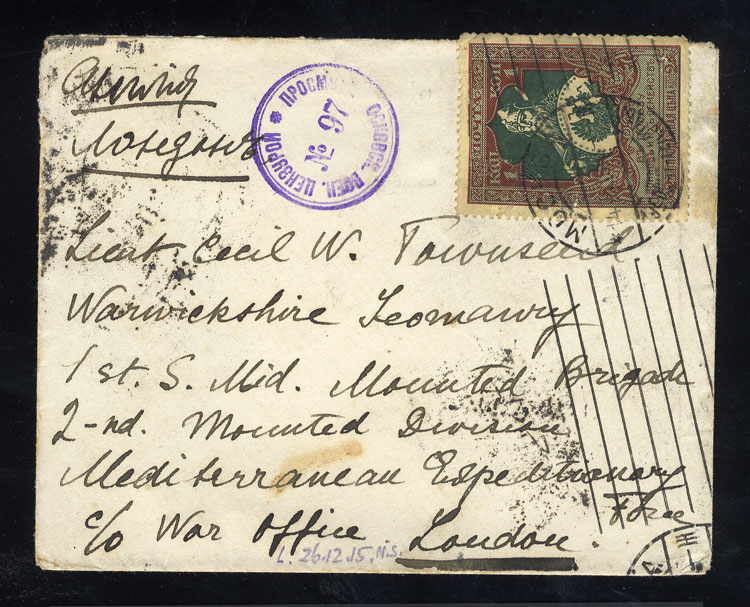 Англія
Лондонъ
ПРОСМ. МОСКОВСК. ВОЕН. ЦЕНЗУРОЙ
№ 97
Lieut Cecil W. Townsend
Warwickshire Yeomanry
1st. S. Mid. Mounted Brigade
2-nd. Mounted Division
Mediterranean Expeditionary
Force
c/o War Office London.
L. 26.12.15. N.S.